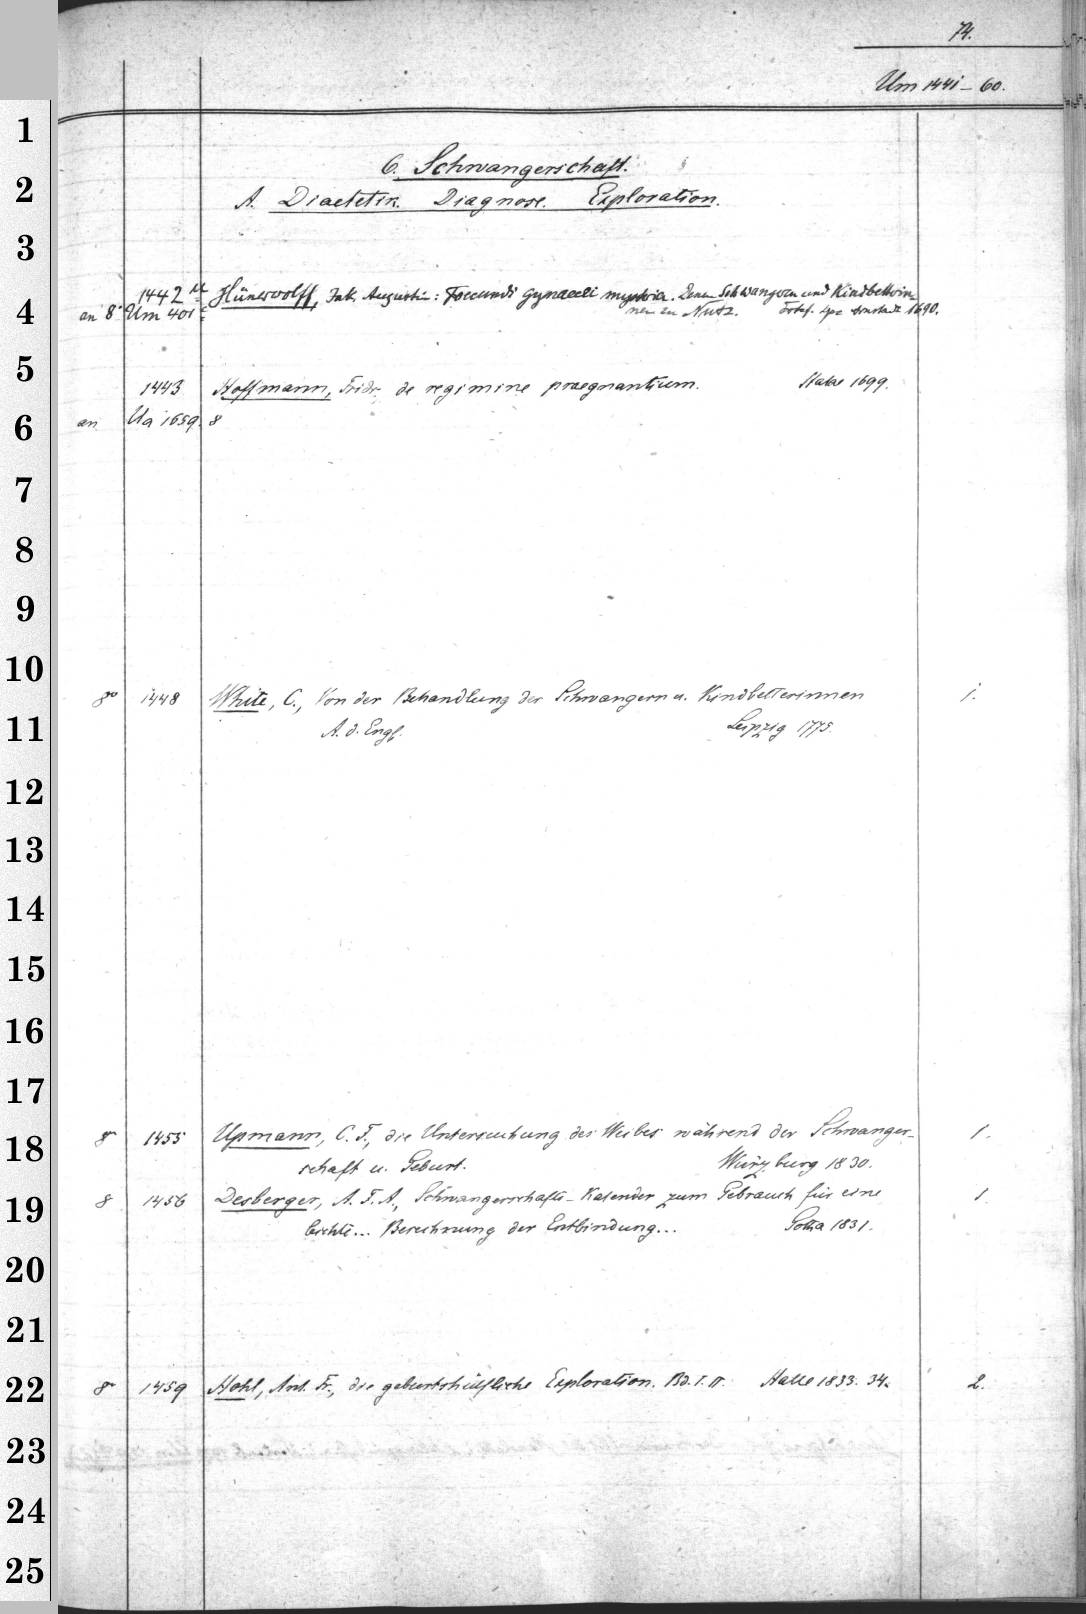 74.
Um 1441-60.
6. Schwangerschaft.
A. Diaetetik. Diagnose. Exploration.
1442 Hünerwolff, Jak. Augustin: Foecundi Gynaecei mysteria. Denen Schwangern und Kindbetterin-
an 8° Um 401 nen zu Nutz. Arnstadt 1690.
1443 Hoffmann, Fridr. de regimine praegnantium. Halae 1699.
an Ua 1659. 8
8° 1448 White, C., Von der Behandlung der Schwangern u. Kindbetterinnen 1.
A. d. Engl. Leipzig 1775.
8° 1455 Upmann, C. F., die Untersuchung des Weibes während der Schwanger- 1.
schaft u. Geburt. Würzburg 1830.
8 1456 Desberger, A. F. A., Schwangerschafts-Kalender zum Gebrauch für eine 1
leichte... Berechnung der Entbindung... Gotha 1831.
8° 1459 Hohl, Ant. Fr., die geburtshülfliche Exploration. Bd. I. II. Halle 1833. 34. 2.
1
2
3
4
5
6
7
8
9
10
11
12
13
14
15
16
17
18
19
20
21
22
23
24
25